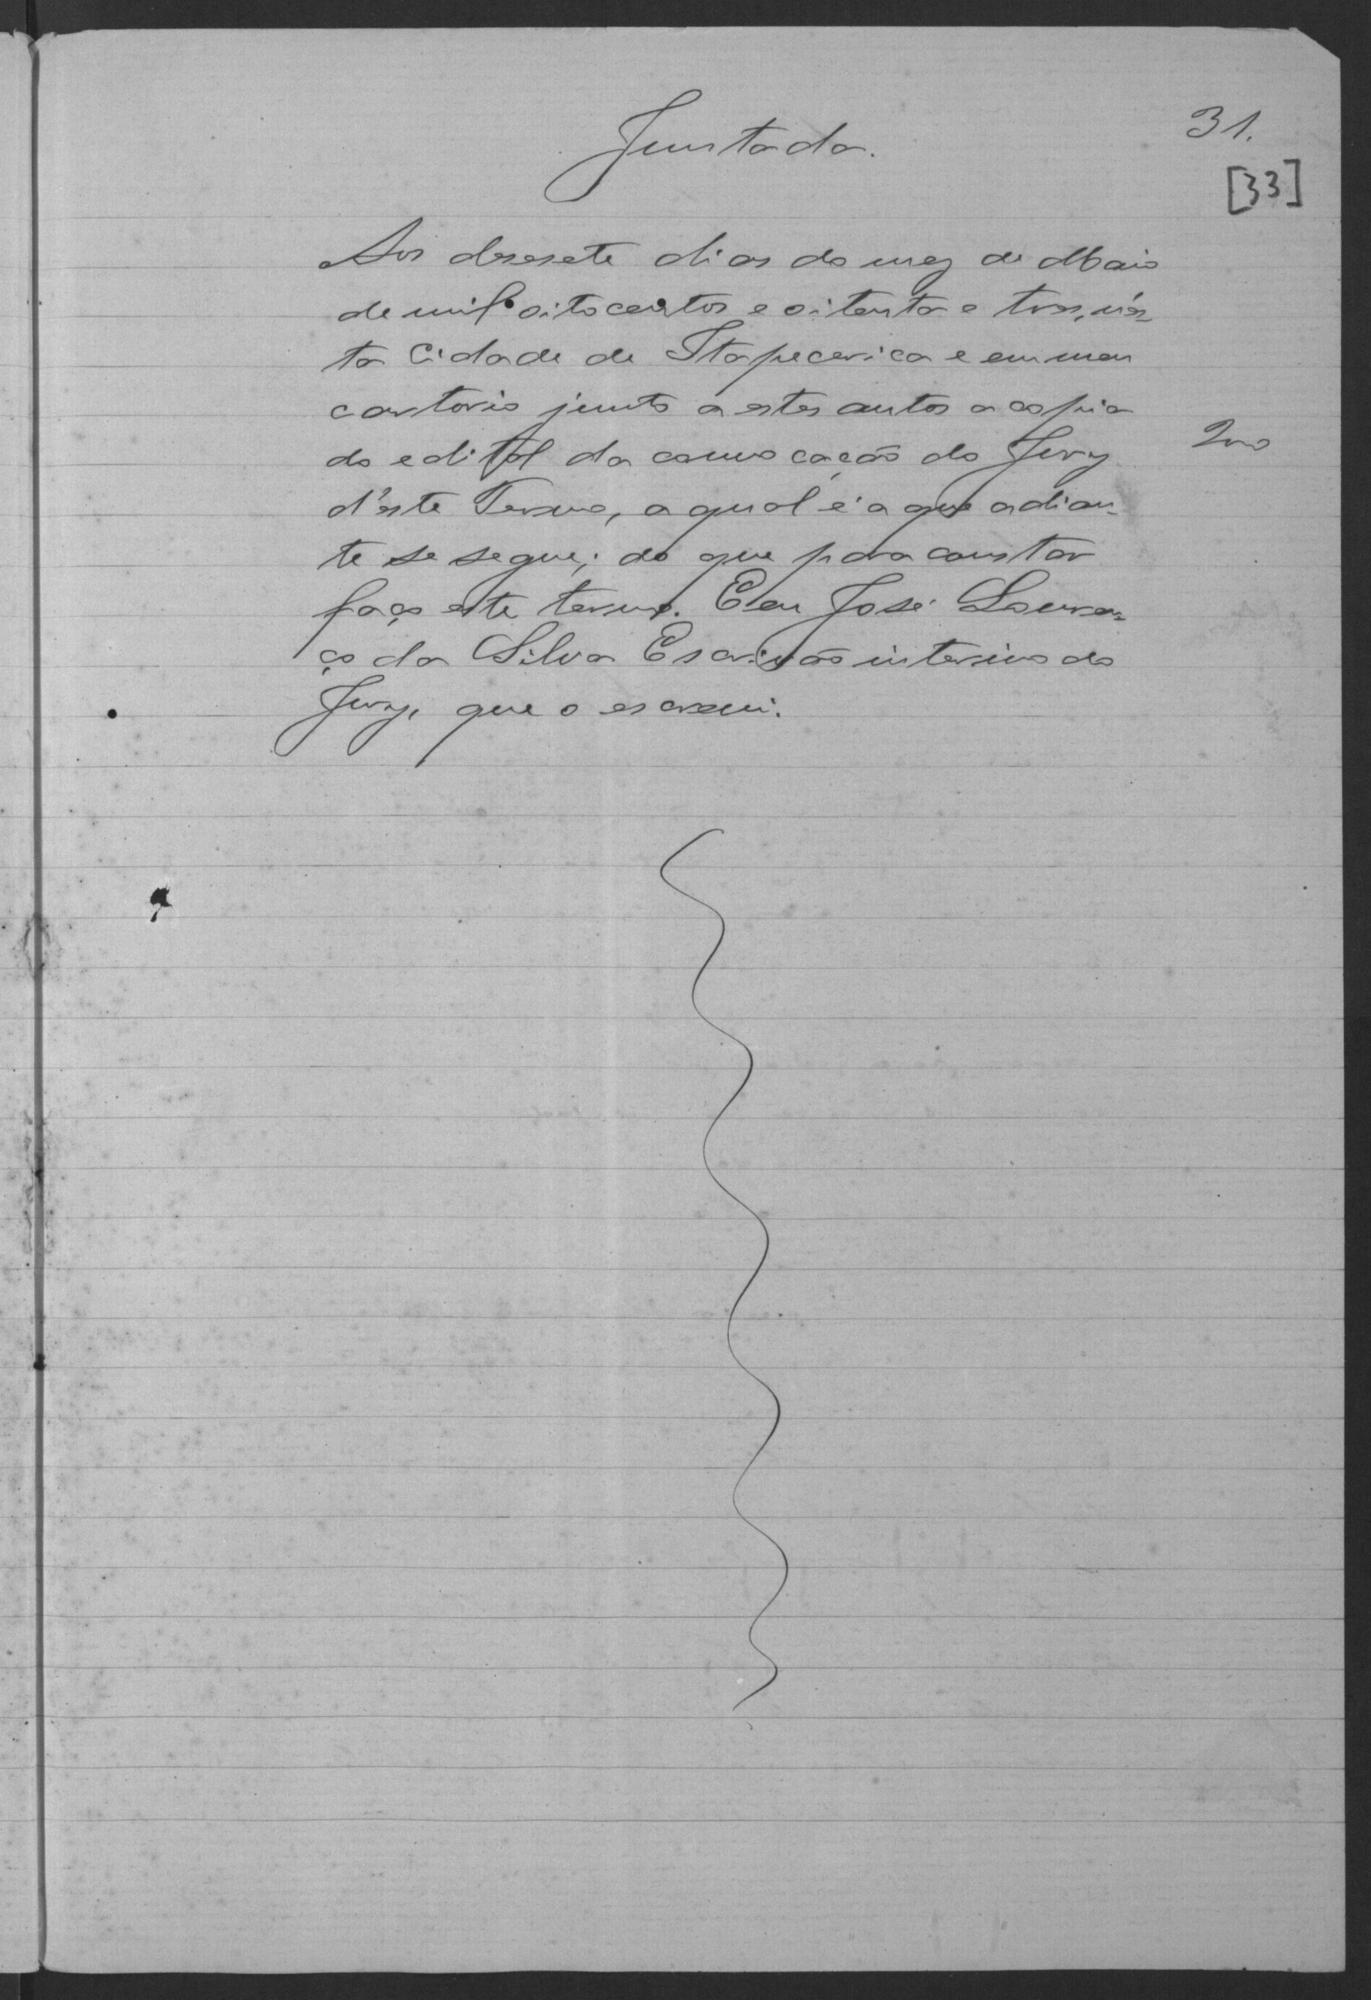 Juntada.
31.
[33]
Aos desesete dias do mez de Maio
de mil oitocentos e oitenta e tres, nés-
ta Cidade de Itapecerica e em meu
cartorio junto a estes autos a copia
do edital da convocação do Jury
200
d'éste Termo, a qual é a que adian-
te se segue; do que para constar
faço este termo. Eeu José Louren-
ço da Silva Escrivão interino do
Jury, que o escrevi.